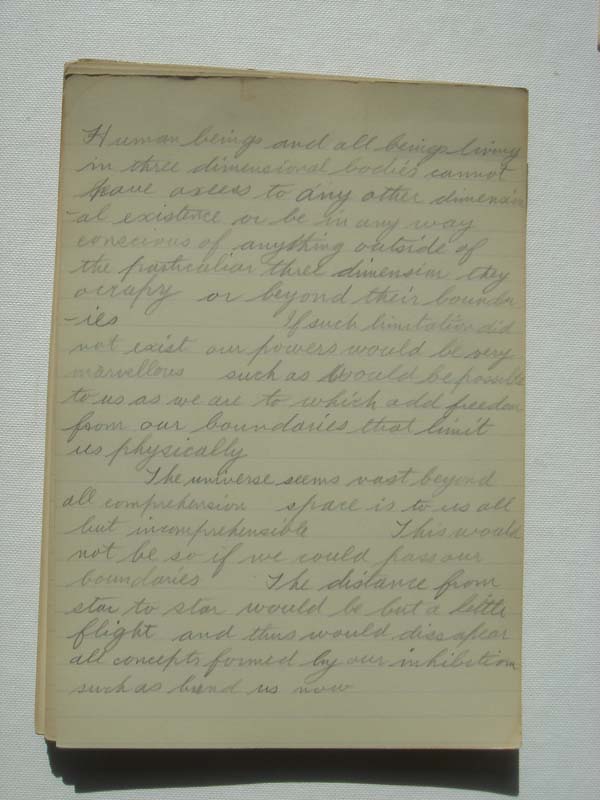 Human beings and all beings living
in three dimensional bodies cannot
have axcess to any other dimension
-al existence or be in any way
conscious of anything outside of
the particuliar three dimension they
ocrapy or beyond their boundr
-ies If such limitation did
not exist our powers would be very
marvellous such as would be possible
to us as we are to which add freedom
from our boundaries that limit
us physically
The universe seems vast beyond
all comprehension space is to us all
but incomprehensible This would
not be so if we could pass our
boundaries The distance from
star to star would be but a little
flight and thus would dissapear
all concepts formed by our inhibitions
such as bind us now